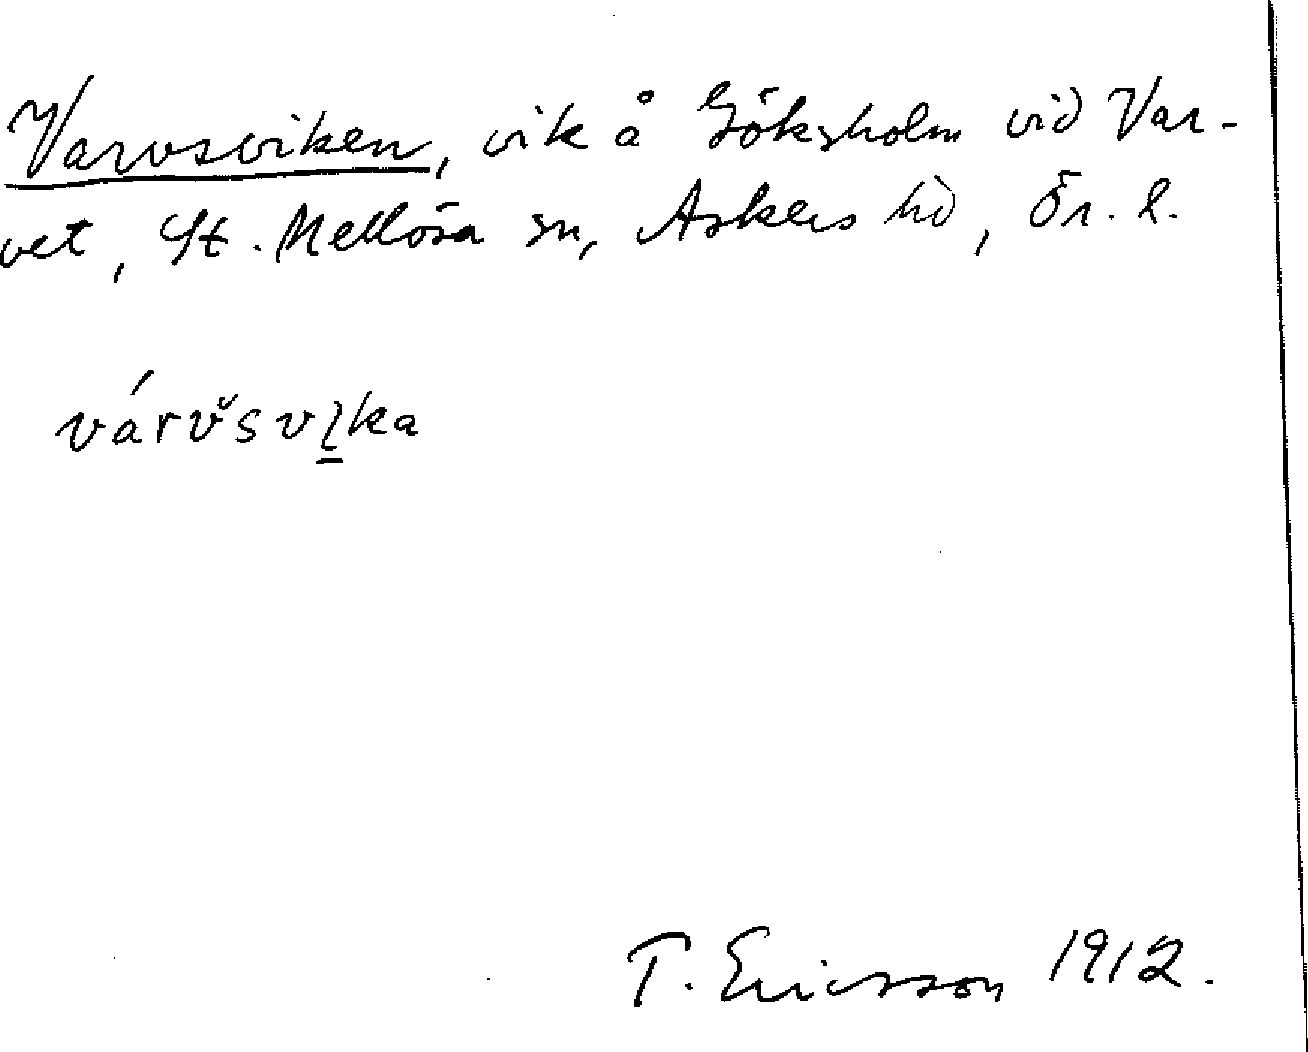 Varvsviken, vik å Göksholm vid Var-
vet, St. Mellösa sn, Askers hd, Ör. l.
várv̌svı̱ka
T. Ericsson 1912.